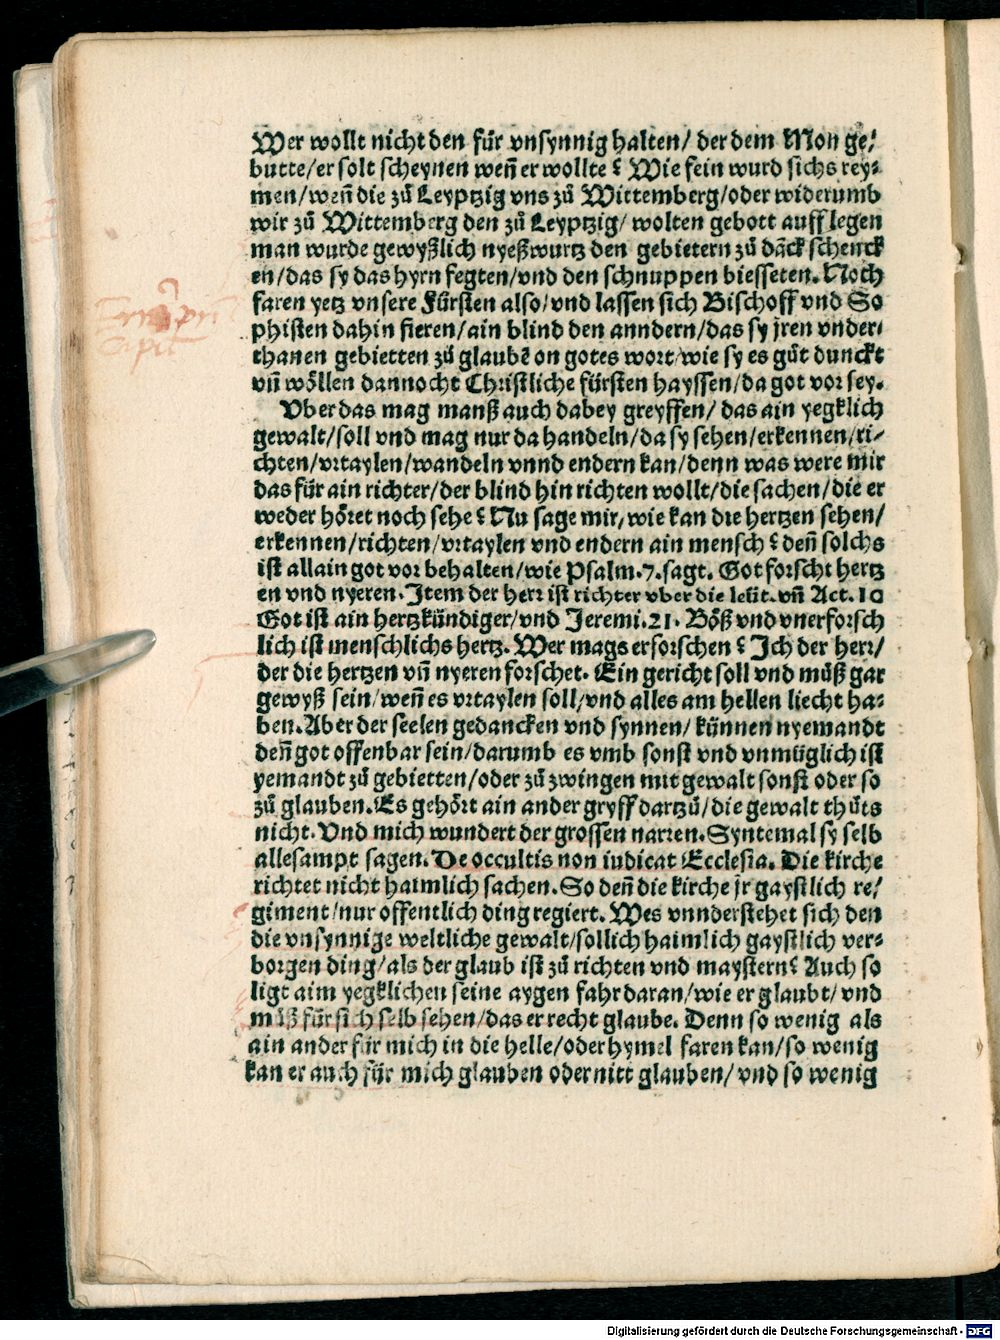 Wer wollt nicht den für vnsynnig halten/ der dem Mon ge⸗
butte/er solt scheynen weñ er wollte? Wie fein wurd sichs rey⸗
men/weñ die zů Leyptzig vns zů Wittemberg/oder widerumb
wir zů Wittemberg den zů Leyptzig/ wolten gebott aufflegen
man wurde gewyßlich nyeßwurtz den gebietern zů dãck schenck
en/das sy das hyrn fegten/vnd den schnuppen biesseten. Noch
faren yetz vnsere Fürsten also/vnd lassen sich Bischoff vnd So
phisten dahin fieren/ain blind den anndern/das sy jren vnder⸗
thanen gebietten zů glaubẽ on gotes wort/wie sy es gůt dunckt
vñ wöllen dannocht Christliche fürsten hayssen/da got vor sey.
Vber das mag manß auch dabey greyffen/ das ain yegklich
gewalt/soll vnd mag nur da handeln/da sy sehen/erkennen/ri⸗
chten/vrtaylen/wandeln vnnd endern kan/denn was were mir
das für ain richter/der blind hin richten wollt/die sachen/die er
weder höret noch sehe? Nu sage mir, wie kan die hertzen sehen/
erkennen/richten/vrtaylen vnd endern ain mensch? deñ solchs
ist allain got vor behalten/wie Psalm.7.sagt. Got forscht hertz
en vnd nyeren. Item der herr ist richter vber die leüt. vñ Act. 10
Got ist ain hertzkündiger/vnd Jeremi.21. Böß vnd vnerforsch
lich ist menschlichs hertz. Wer mags erforschen? Ich der herr/
der die hertzen vñ nyeren forschet. Ein gericht soll vnd můß gar
gewyß sein/weñ es vrtaylen soll/vnd alles am hellen liecht ha⸗
ben. Aber der seelen gedancken vnd synnen/ künnen nyemandt
deñ got offenbar sein/darumb es vmb sonst vnd vnmüglich ist
yemandt zů gebietten/oder zů zwingen mit gewalt sonst oder so
zů glauben. Es gehört ain ander gryff dartzů/die gewalt thůts
nicht. Vnd mich wundert der grossen narren. Syntemal sy selb
allesampt sagen. De occultis non iudicat Ecclesia. Die kirche
richtet nicht haimlich sachen. So deñ die kirche jr gaystlich re⸗
giment/nur offentlich ding regiert. Wes vnnderstehet sich den
die vnsynnige weltliche gewalt/sollich haimlich gaystlich ver⸗
borgen ding/als der glaub ist zů richten vnd maystern? Auch so
ligt aim yegklichen seine aygen fahr daran/wie er glaubt/ vnd
můß für sich selb sehen/das er recht glaube. Denn so wenig als
ain ander für mich in die helle/oder hymel faren kan/so wenig
kan er auch für mich glauben oder nitt glauben/ vnd so wenig
Digitalisierung gefördert durch die Deutsche Forschungsgemeinschaft - DFG